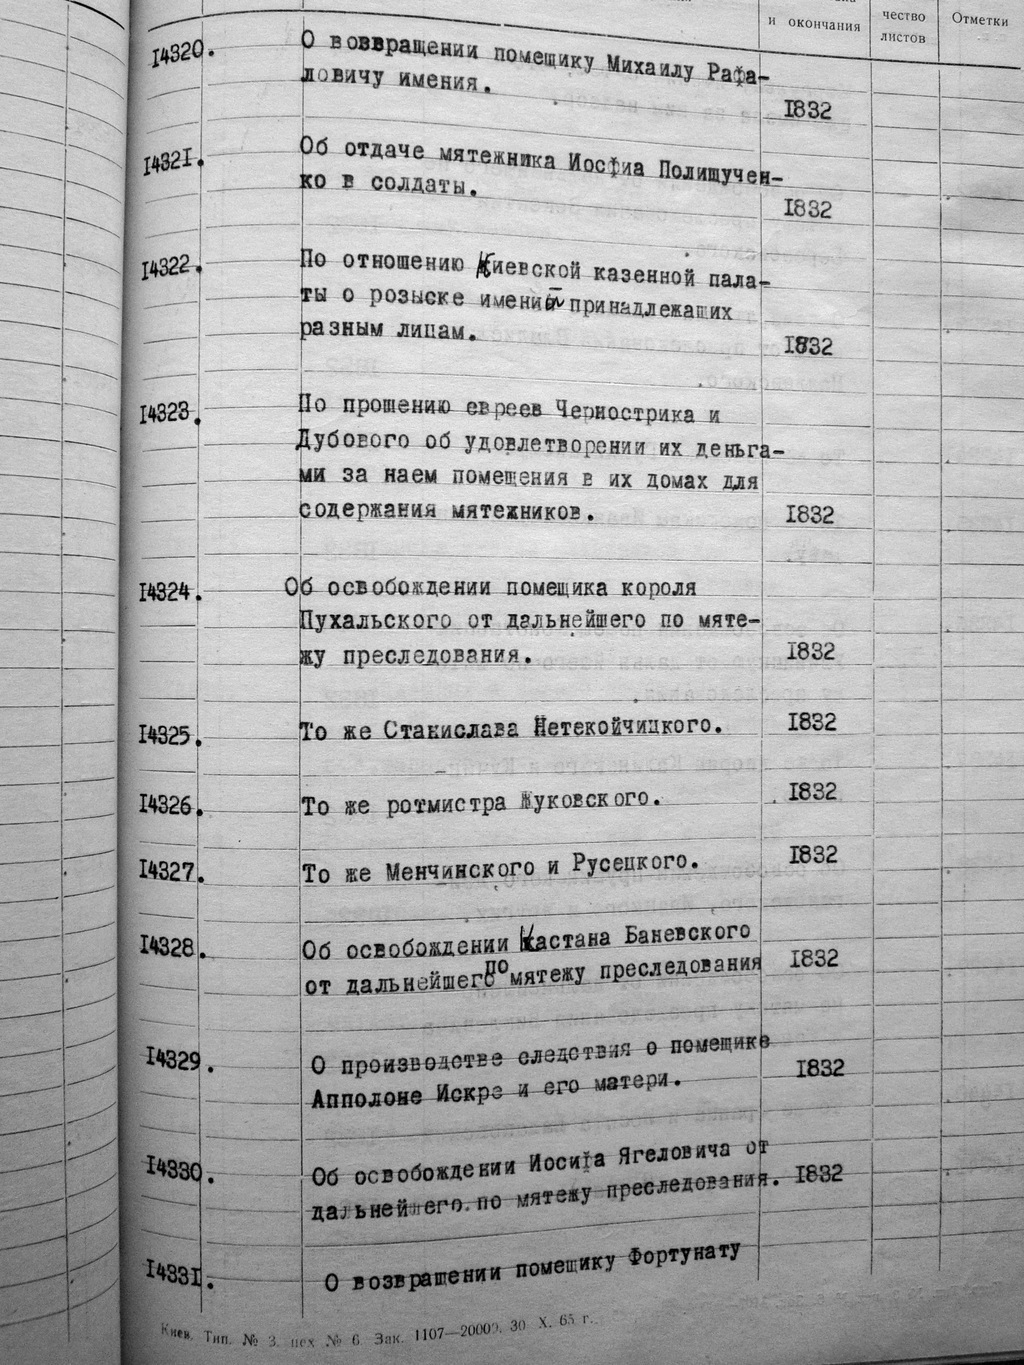 и окончания
чество
листов
Отметки
14320. О возвращении помещику Михаилу Рафа-
ловичу имения. 1832
14321. Об отдаче мятежника Иосфиа Полищучен-
ко в солдаты. 1832
14322. По отношению Киевской казенной пала-
ты о розыске имений принадлежащих
разным лицам. 1832
14323. По прошению евреев Чернострика и
Дубового об удовлетворении их деньга-
ми за наем помещения в их домах для
содержания мятежников. 1832
14324. Об освобождении помещика короля
Пухальского от дальнейшего по мяте-
жу преследования. 1832
14325. То же Станислава Нетекойчицкого. 1832
14326. То же ротмистра Жуковского. 1832
14327. То же Менчинского и Русецкого. 1832
14328. Об освобождении Кастана Баневского
от дальнейшего по мятежу преследования 1832
14329. О производстве следствия о помещике
Апполоне Искре и его матери. 1832
14330. Об освобождении Иосифа Ягеловича от
дальнейшего по мятежу преследования. 1832
14331. О возвращении помещику Фортунату
Киев. Тип. № 3. цех № 6. Зак. 1107—20000. 30 X. 65 г.